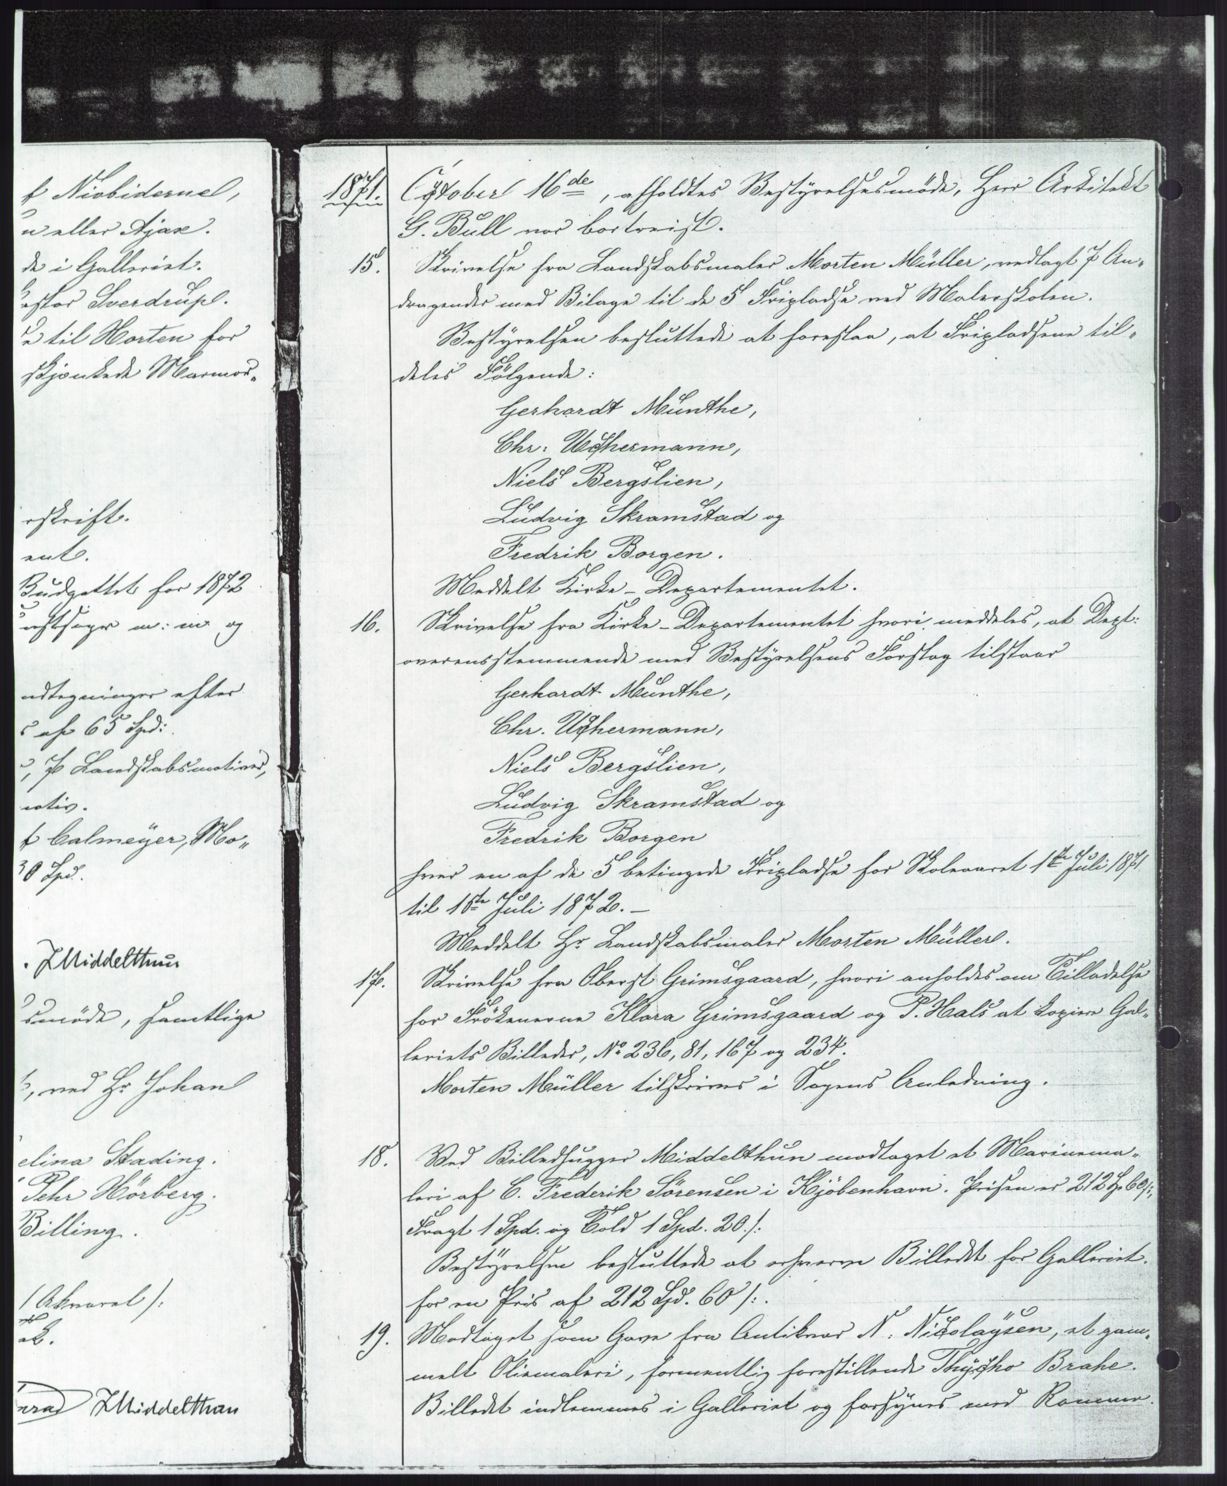 f Niobiderne,
n eller Ajax.
de i Galleriet.
essor Sverdrup.
e til Morten for
skjænkede Marmor„
rskrift.
ent.
Budgettet for 1872
unstsager m: m og
ndtegninger efter
s af 65 Spd:
, 7 Landskabsmotiver,
motiv.
f Calmeyer, Mo„
30 Spd.
. J Middelthun
smøde, samtlige
, ved Hr Johan
elina Stading.
Pehr Hörberg.
Billing.
/ Akvarel /:
nrad J Middelthun
1871. October 16de, afholdtes Bestyrelsesmøde. Herr Arkitekt
G. Bull var bortreist.
15. Skrivelse fra Landskabsmaler Morten Müller, vedlagt 7 An„
dragender med Bilage til de 5 Fripladse ved Malerskolen.
Bestyrelsen besluttede at foreslaa, at Fripladsene til„
deles Følgende:
Gerhardt Munthe,
Chr: Uchermann,
Niels Bergslien,
Ludvig Skramstad og
Fredrik Borgen.
Meddelt Kirke-Departementet.
16. Skrivelse fra Kirke-Departementet hvori meddeles, at Dept:
overensstemmende med Bestyrelsens Forslag tilstaar
Gerhardt Munthe,
Chr. Uchermann,
Niels Bergslien,
Ludvig Skramstad og
Fredrik Borgen
hver en af de 5 betingede Fripladse for Skoleaaret 1ste Juli 1871
til 1ste Juli 1872. –
Meddelt Hr Landskabsmaler Morten Müller.
17. Skrivelse fra Oberst Grimsgaard, hvori anholdes om Tilladelse
for Frøkenerne Klara Grimsgaard og P. Hals at kopiere Gal„
leriets Billeder, No 236, 81, 167 og 234.
Morten Müller tilskrives i Sagens Anledning.
18. Ved Billedhugger Middelthun modtaget et Marinema„
leri af C. Frederik Sørensen i Kjøbenhavn. Prisen er 212 Sp 60 /:,
Fragt 1 Spd. og Told 1 Spd. 20 /:
Bestyrelsen besluttede at erhverve Billedet for Galleriet
for en Pris af 212 Spd. 60 /:.
19. Modtaget som Gave fra Antikvar N: Nicolaysen, et gam„
melt Oliemaleri, formentlig forestillende Thycho Brahe.
Billedet indlemmes i Galleriet og forsynes med Ramme.